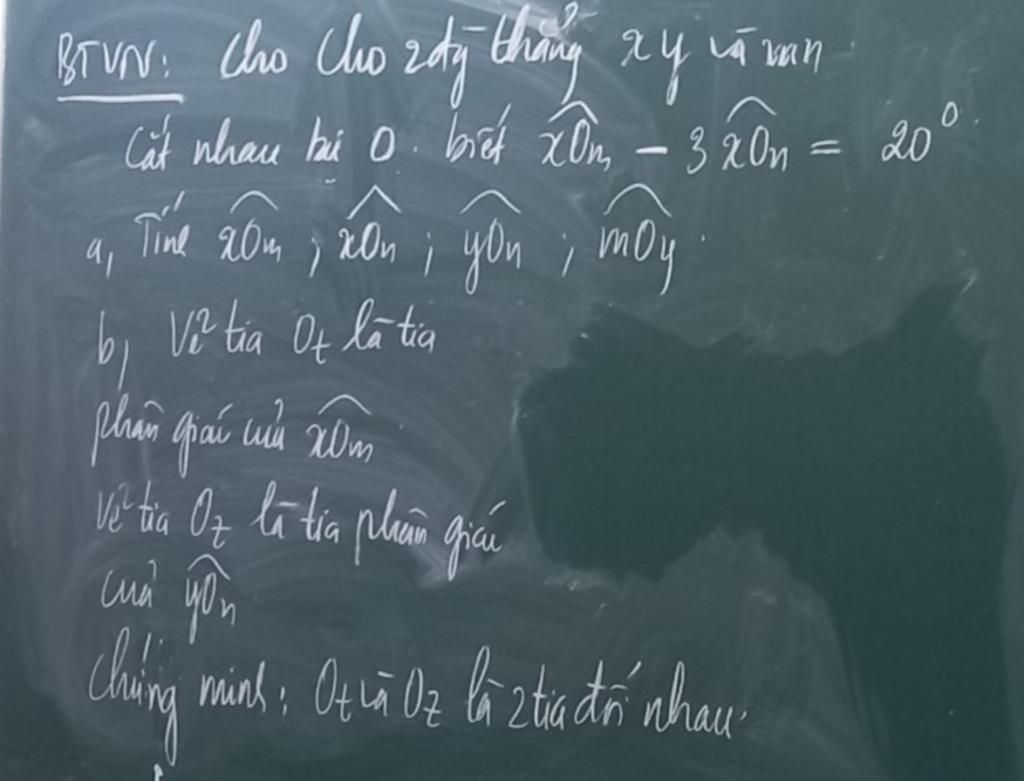 BTVN: Cho Cho 2 đg thẳng xy và mn
Cắt nhau tại O. biết xOm - 3 xOn = 20⁰
a, Tính xOm ; xOn ; yOn ; mOy.
b, Vẽ tia Ot là tia
phân giác của xOm
Vẽ tia Oz là tia phân giác
của yOn
Chứng minh: Ot và Oz là 2 tia đối nhau.